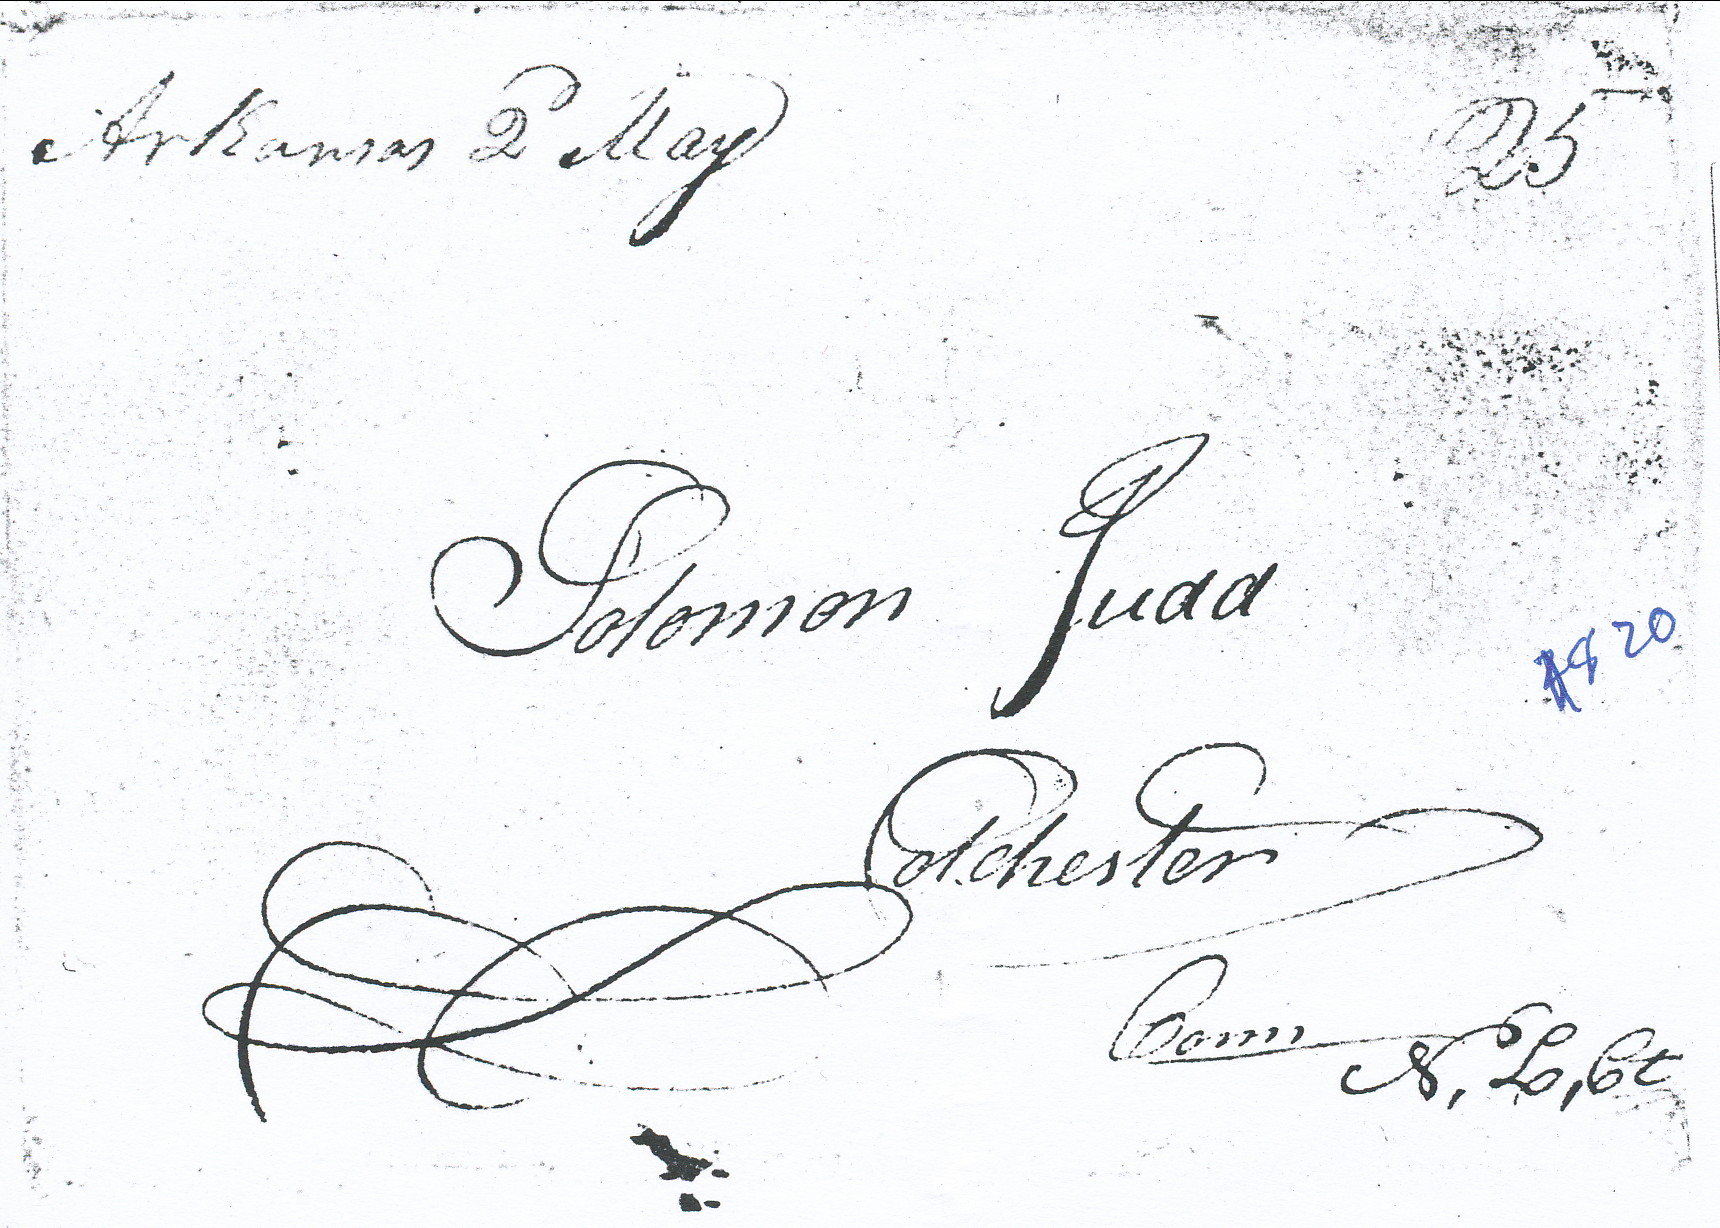 Arkansas 2 May
25
Solomon Judd
Colchester
Conn
N, L, Ct